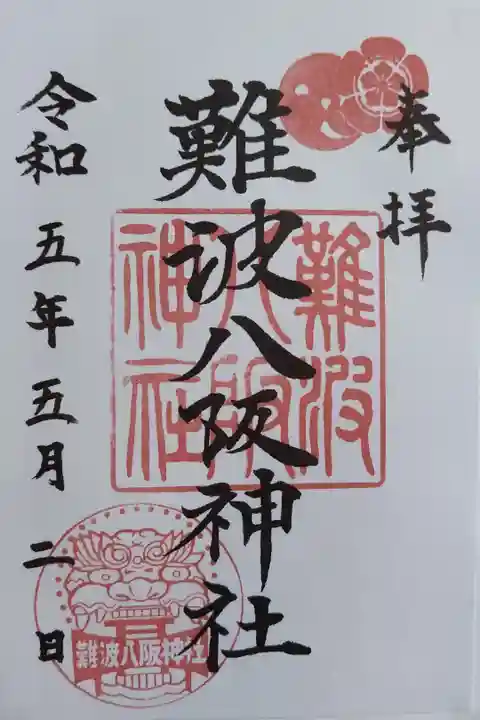 奉拝
難波八阪神社
難波
八阪
神社
令和五年五月二日
難波八阪神社